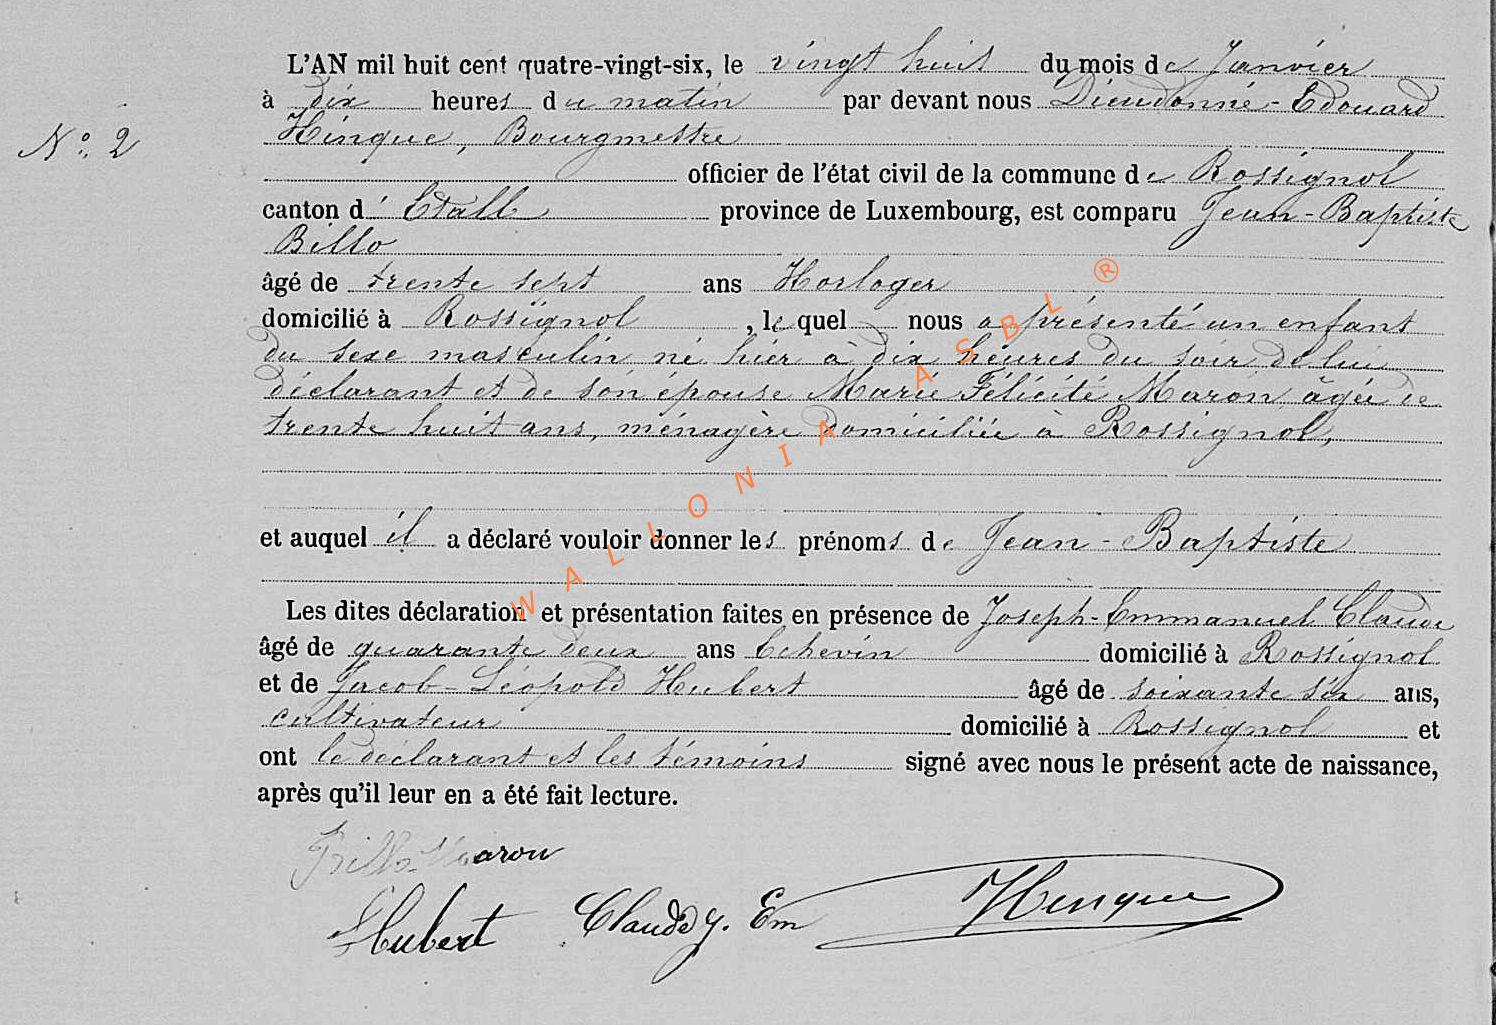 L'AN mil huit cent quatre-vingt-six, le vingt huit du mois de Janvier
à dix heures du matin par devant nous Dieudonné-Edouard
No. 2
Hinque, Bourgmestre
officier de l'état civil de la commune de Rossignol
canton d' Etalle province de Luxembourg, est comparu Jean-Baptiste
Billo
âgé de trente sept ans Horloger
domicilié à Rossignol, lequel nous a présenté un enfant
du sexe masculin né hier à dix heures du soir de lui
déclarant et de son épouse Marie Félicité Maron, âgée de
trente huit ans, ménagère domiciliée à Rossignol,
et auquel il a déclaré vouloir donner les prénoms de Jean-Baptiste
Les dites déclaration et présentation faites en présence de Joseph-Emmanuel Claude
âgé de quarante deux ans Echevin domicilié à Rossignol
et de Jacob-Léopold Hubert âgé de soixante six ans,
cultivateur domicilié à Rossignol et
ont le déclarant et les témoins signé avec nous le présent acte de naissance,
après qu'il leur en a été fait lecture.
Billo-Maron
Hubert Claude J. Em Hinque
WALLONIA ASBL ®